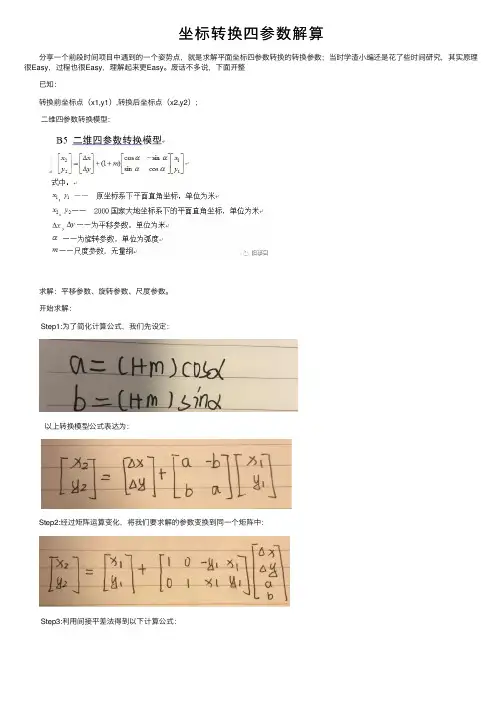 坐标转换四参数解算
分享一个前段时间项目中遇到的一个姿势点，就是求解平面坐标四参数转换的转换参数；当时学渣小编还是花了些时间研究，其实原理
很Easy，过程也很Easy，理解起来更Easy。废话不多说，下面开整
已知：
转换前坐标点（x1,y1）,转换后坐标点（x2,y2）；
二维四参数转换模型：
B5 二维四参数转换模型
[x₂ y₂] = [Δx Δy] + (1+m) [cosα −sinα sinα cosα] [x₁ y₁]
式中，
x₁, y₁ —— 原坐标系下平面直角坐标，单位为米
x₂, y₂—— 2000国家大地坐标系下的平面直角坐标，单位为米
Δx, Δy——为平移参数，单位为米
α ——为旋转参数，单位为弧度
m——尺度参数，无量纲
求解：平移参数、旋转参数、尺度参数。
开始求解：
Step1:为了简化计算公式，我们先设定：
a = (1+m) cosα
b = (1+m) sinα
以上转换模型公式表达为：
[x2 y2] = [Δx Δy] + [a -b b a] [x1 y1]
Step2:经过矩阵运算变化，将我们要求解的参数变换到同一个矩阵中：
[x2 y2] = [x1 y1] + [1 0 -y1 x1 0 1 x1 y1] [Δx Δy a b]
Step3:利用间接平差法得到以下计算公式：